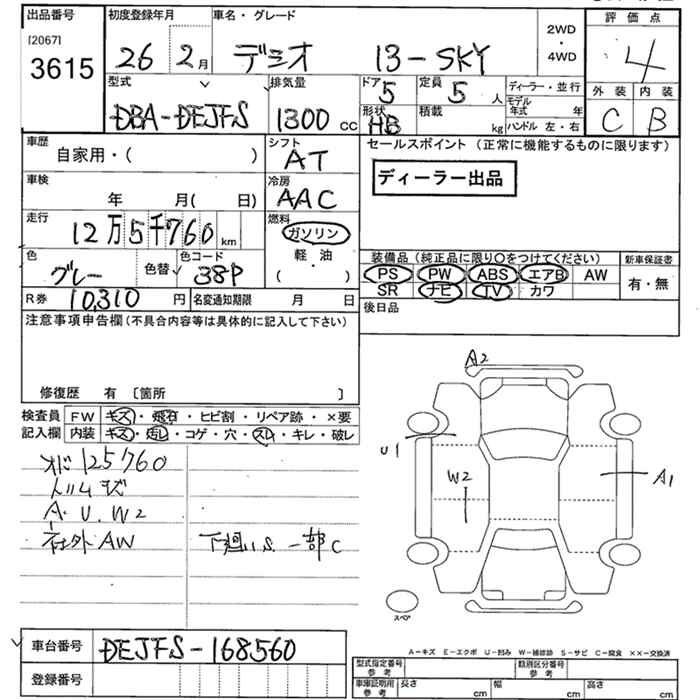 出品番号
[2067]
3615
初度登録年月
26 2月
車名・グレード
デミオ 13-SKY
2WD
・
4WD
評価点
4
外装 内装
C B
型式
DBA-DEJFS
排気量
1300 cc
ドア
5
定員
5 人
形状
HB
積載
kg
ディーラー・並行
モデル年式 年
ハンドル 左・右
車歴
自家用・( )
シフト
AT
セールスポイント (正常に機能するものに限ります)
ディーラー出品
車検
年 月( 日)
冷房
AAC
走行
12万5千760 km
燃料
ガソリン
軽油
( ・ )
色
グレー
色替
色コード
38P
装備品(純正品に限り〇をつけてください)
新車保証書
PS PW ABS エアB AW
有・無
SR ナビ TV カワ
R券 10,310 円
名変通知期限 月 日
後日品
注意事項申告欄(不具合内容等は具体的に記入して下さい)
修復歴 有 〔箇所 〕
検査員
記入欄
FW キズ・飛石・ヒビ割・リペア跡・×要
内装 キズ・汚レ・コゲ・穴・スレ・キレ・破レ
オド125760
A.U.W2
社外AW
下廻りS.一部C
A2
U1
W2
A1
スペア
A-キズ E-エクボ U-凹み W-補修跡 S-サビ C-腐食 ××-交換済
車台番号 DEJFS-168560
登録番号
型式指定番号
参考
類別区分番号
参考
車庫証明用
参考
長さ cm
幅 cm
高さ cm